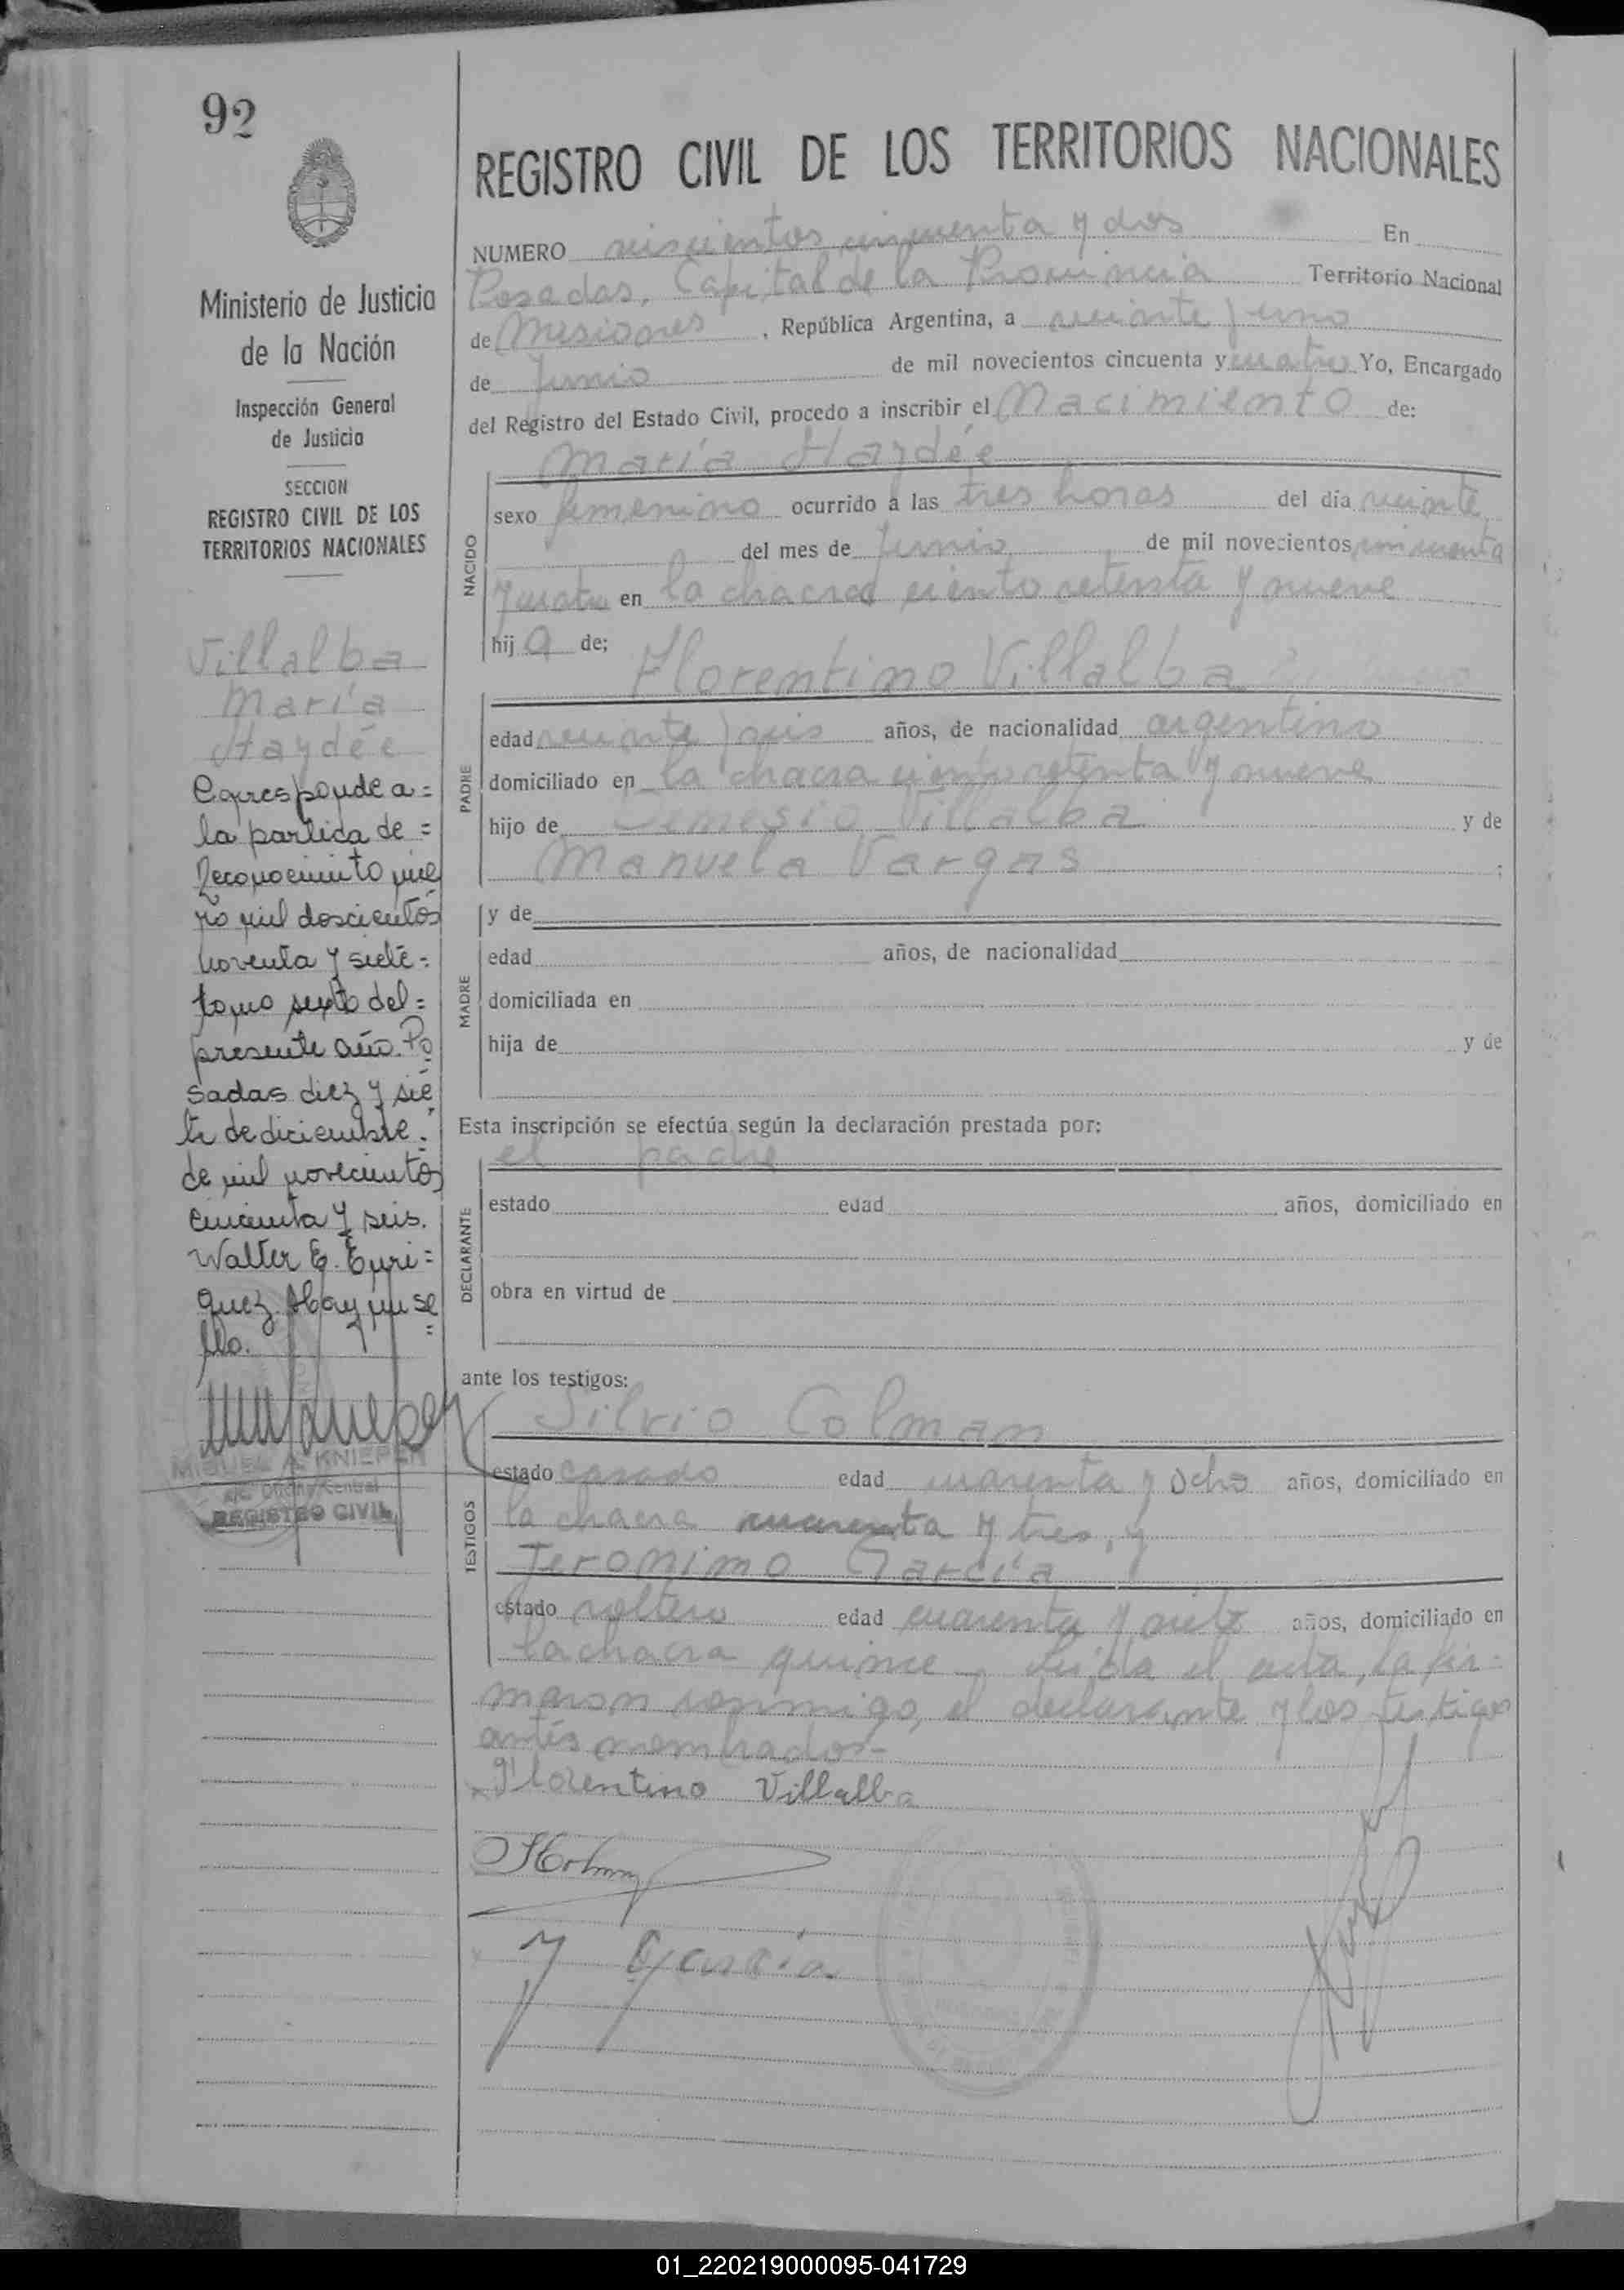 92
Ministerio de Justicia
de la Nación
Inspección General
de Justicia
SECCION
REGISTRO CIVIL DE LOS
TERRITORIOS NACIONALES
Villalba
María
Haydée
Corresponde a=
la partida de =
Reconocimiento núme
ro mil doscientos
noventa y siete=
tomo sexto del=
presente año. Po
sadas diez y sie
te de diciembre.
de mil novecientos
cincuenta y seis.
Walter E. Enri=
quez. Hay un se
llo.
MIGUEL A. KNIEPER
Oficina Central
REGISTRO CIVIL
REGISTRO CIVIL DE LOS TERRITORIOS NACIONALES
NUMERO seiscientos cincuenta y dos En
Posadas, Capital de la Provincia Territorio Nacional
de Misiones, República Argentina, a veinte y uno
de Junio de mil novecientos cincuenta y cuatro Yo, Encargado
del Registro del Estado Civil, procedo a inscribir el Nacimiento de:
María Haydée
NACIDO
sexo femenino ocurrido a las tres horas del día veinte
del mes de Junio de mil novecientos cincuenta
y cuatro en la chacra ciento setenta y nueve
hija de;
Florentino Villalba
PADRE
edad veinte y seis años, de nacionalidad argentino
domiciliado en la chacra ciento setenta y nueve
hijo de Villalba y de
Manuela Vargas ;
y de
MADRE
edad años, de nacionalidad
domiciliada en
hija de y de
Esta inscripción se efectúa según la declaración prestada por:
el padre
DECLARANTE
estado edad años, domiciliado en
obra en virtud de
ante los testigos:
Silvio Colman
TESTIGOS
estado casado edad cuarenta y ocho años, domiciliado en
la chacra cuarenta y tres, y
Jeronimo García
estado soltero edad cuarenta y siete años, domiciliado en
la chacra quince. Leída el acta, la fir=
maron conmigo, el declarante y los testigos
antes nombrados-
Florentino Villalba
J García
01_220219000095-041729